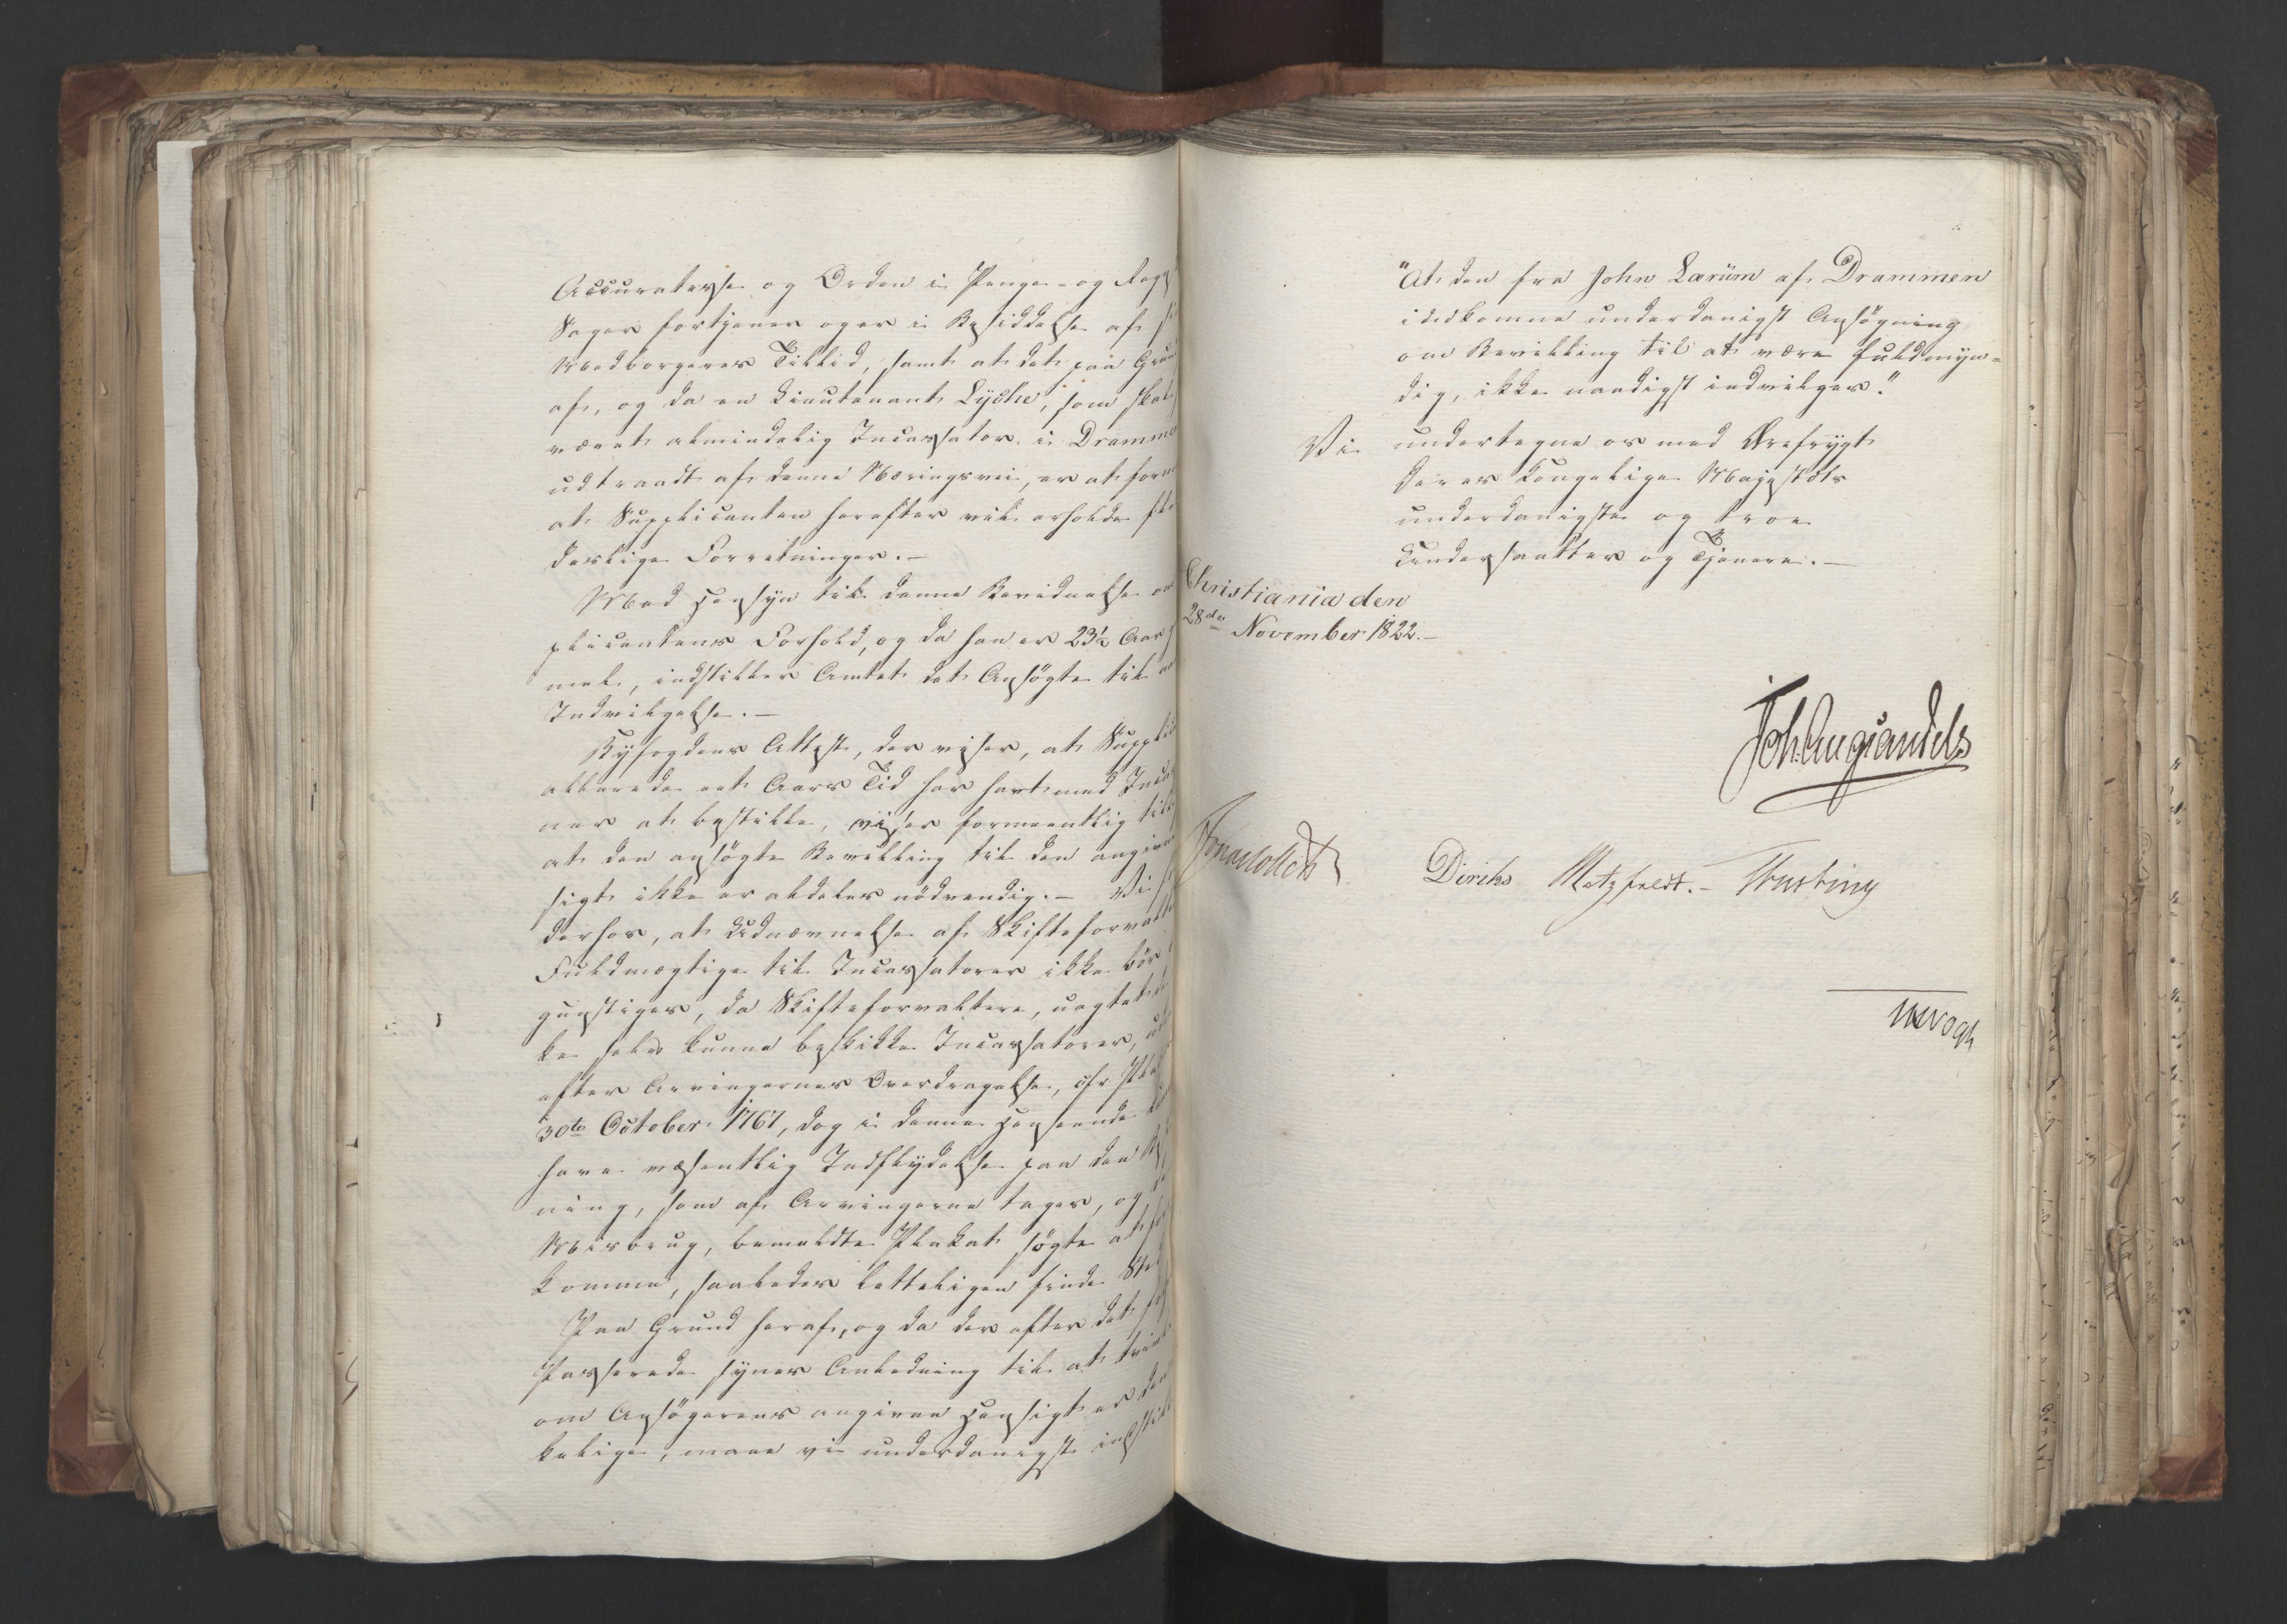 Accuratesse og Orden i Penge- og Regn
Sager fortjener og er i Besiddelse af si
Medborgeres Tillid, samt at det paa Grun
af, og da en Lieutenant Lyche, som skal
været almindelig Incassator i Dramme
udtraadt af denne Næringsvei, er at form
at Supplicanten herefter vil erholde fle
deslige Forretninger.—
Med Hensyn til denne Bevidnelse om
plicantens Forhold, og da han er 23½ Aar
mel, indstiller Amtet det Ansögte til
Indvilgelse.—
Byfogdens Attest, der viser, at Supplic
allerede eet Aars Tid har havt med Incas
ner at bestille, viser formeentlig till
at den ansögte Bevilling til den angivne
sigt ikke er aldeles nödvendig.— Vi
derhos, at Udnævnelse af Skifteforvalte
Fuldmægtige til Incassatorer ikke bör
gunstiges, da Skifteforvaltere, uagtet
ke selv kunne beskikke Incassatorer,
efter Arvingernes Overdragelse, cfr Pla
30te October 1767, dog i denne Henseende
have væsentlig Indflydelse paa den Be
ning, som af Arvingerne tages, og
Misbrug, bemeldte Plakat søgte at fo
komme, saaledes letteligen finde Sted
Paa Grund heraf, og da der efter det
Passerede synes Anledning til at tvivl
om Ansögerens angivne Hensigt er den
kelige, maae vi underdanigst indstil
"At den fra John Lærum af Drammen
indkomne underdanigst Ansögning
om Bevilling til at være fuldmyn=
dig, ikke naadigst indvilges."
Vi undertegne os med Ærefrygt
Deres Kongelige Majestæts
underdanigste og troe
Undersaatter og Tjenere.—
Christiania den
28de November 1822.—
Joh. Aug. Sandels
Jonas Collett Diriks Motzfeldt.— Krebting